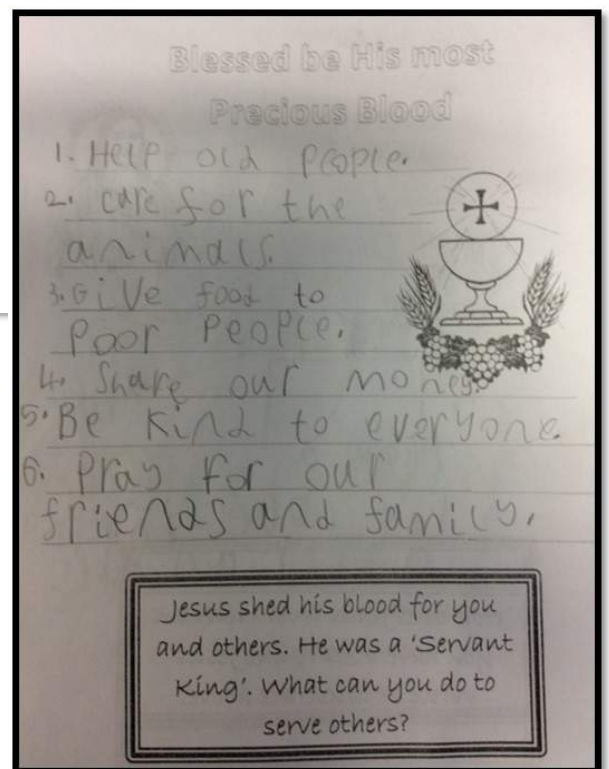 Blessed be His most
Precious Blood
1. Help old people.
2. care for the
animals.
3. Give food to
Poor People.
4. Share our money.
5. Be Kind to everyone.
6. Pray for our
friends and family.
Jesus shed his blood for you
and others. He was a 'Servant
King'. What can you do to
serve others?